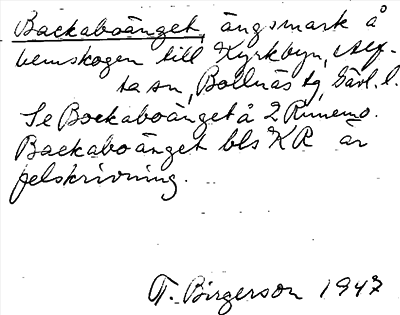 Backaboänget, ängsmark å
hemskogen till Kyrkbyn, Alf-
ta sn, Bollnäs tg, Gävl. l.
Se Bockaboänget å 2 Runemo.
Backaboänget bls KR är
felskrivning.
T. Birgerson 1947